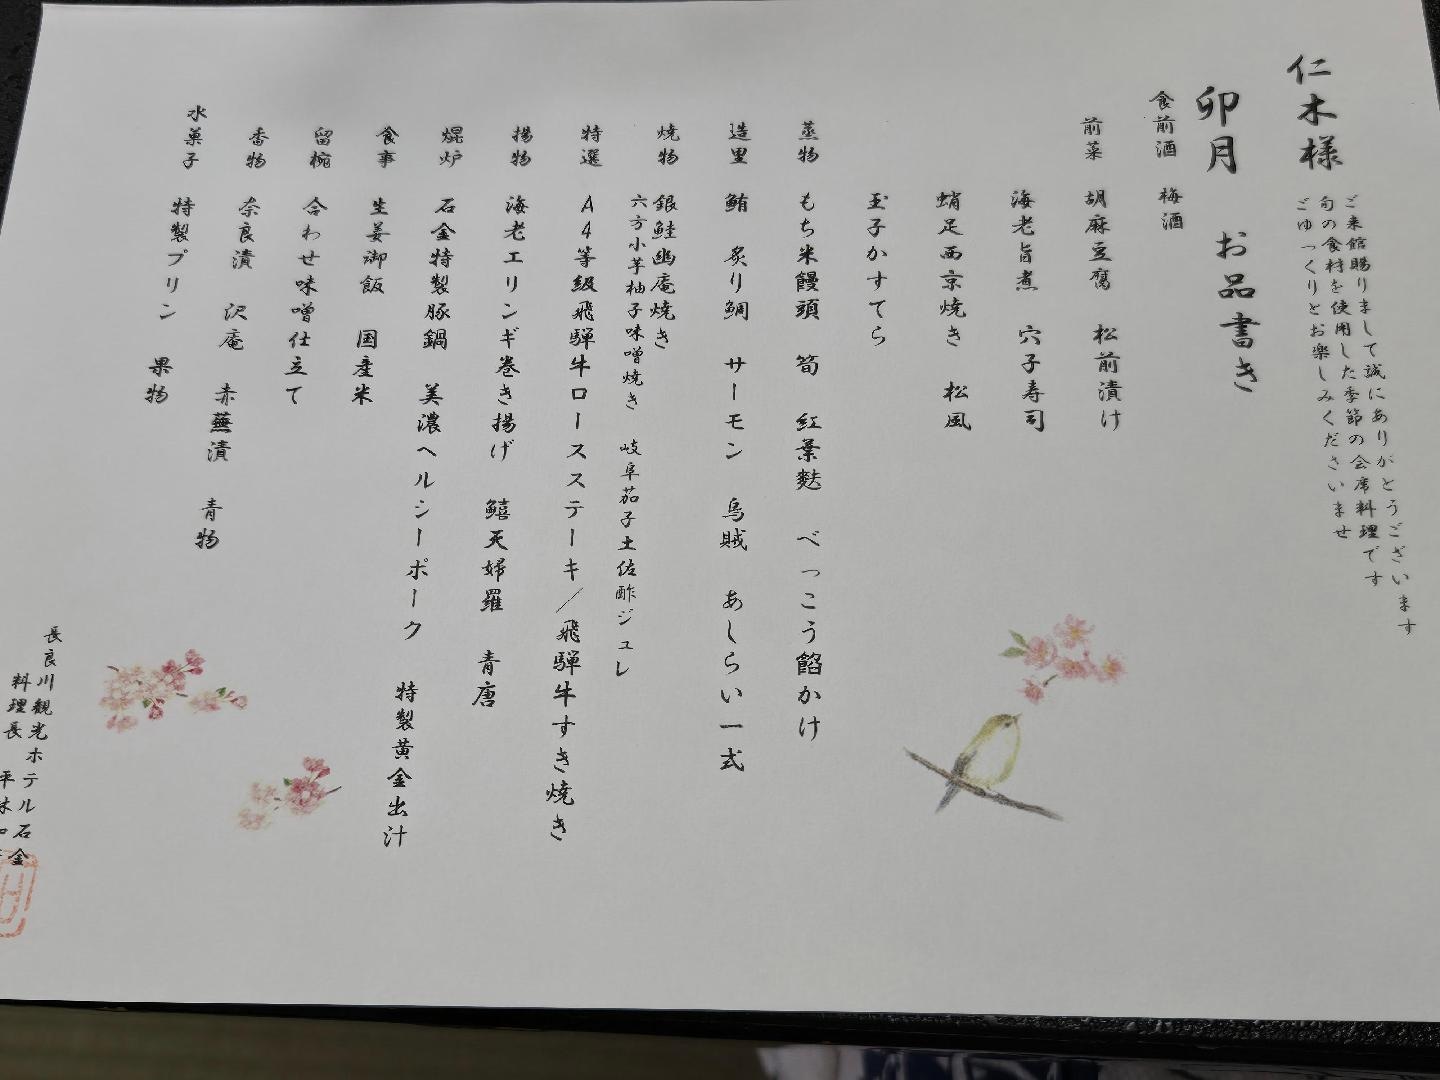 仁木様
ご来館賜りまして誠にありがとうございます
旬の食材を使用した季節の会席料理です
ごゆっくりとお楽しみくださいませ
卯月 お品書き
食前酒 梅酒
前菜 胡麻豆腐 松前漬け
海老旨煮 穴子寿司
蛸足西京焼き 松風
玉子かすてら
蒸物 もち米饅頭 筍 紅葉麩 べっこう餡かけ
造里 鮪 炙り鯛 サーモン 烏賊 あしらい一式
焼物 銀鮭幽庵焼き
六方小芋柚子味噌焼き 岐阜茄子土佐酢ジュレ
特選 A4等級飛騨牛ロースステーキ/飛騨牛すき焼き
揚物 海老エリンギ巻き揚げ 鱚天婦羅 青唐
焜炉 石金特製豚鍋 美濃ヘルシーポーク 特製黄金出汁
食事 生姜御飯 国産米
留椀 合わせ味噌仕立て
香物 奈良漬 沢庵 赤蕪漬 青物
水菓子 特製プリン 果物
長良川観光ホテル石金
料理長 平